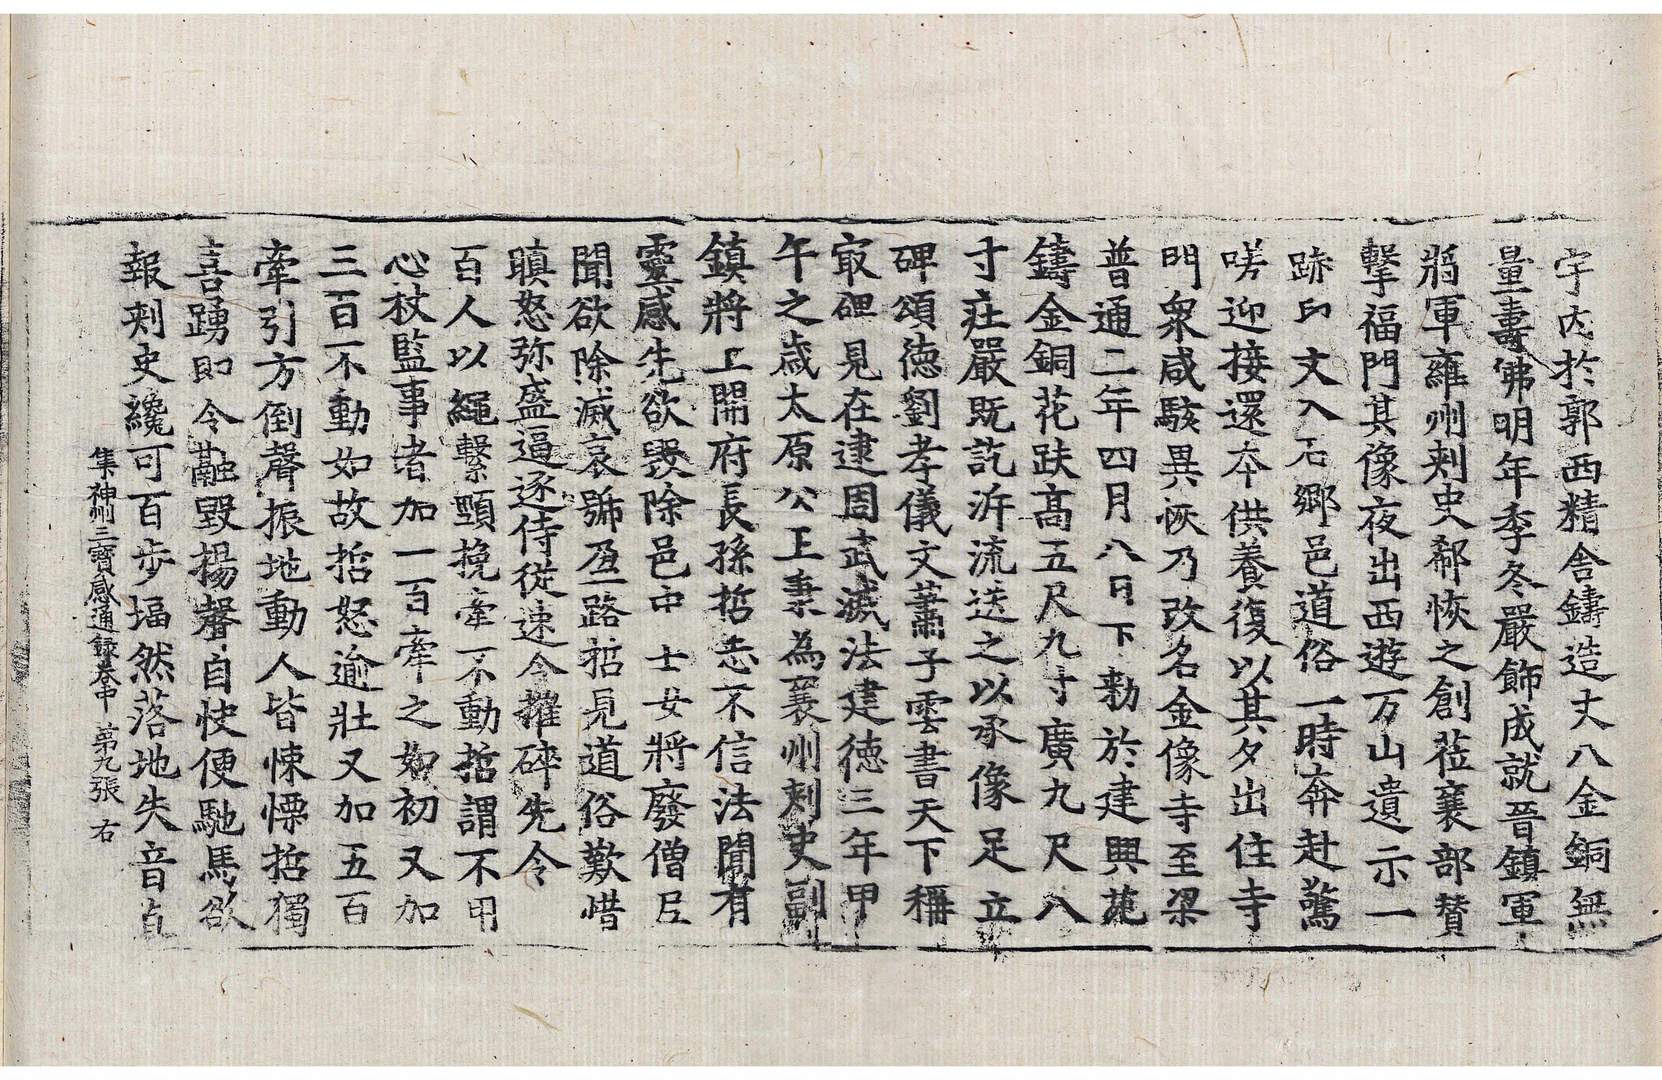 宇內於郭西精舍鑄造丈八金銅無
量壽佛明年季冬嚴飾成就晉鎮軍
將軍雍州刾史郗恢之創莅襄部賛
擊福門其像夜出西遊万山遺示一
跡印文入石鄉邑道俗一時奔赴驚
嗟迎接還夲供養復以其夕出住寺
門衆咸駭異恢乃改名金像寺至梁
普通二年四月八日下勑於建興苑
鑄金銅花趺髙五尺九寸廣九尺八
寸莊嚴既訖泝流送之以承像足立
碑頌德劉孝儀文蕭子雲書天下稱
最碑見在逮周武滅法建德三年甲
午之歳太原公王秉為襄州刾史副
鎮將上開府長孫哲志不信法聞有
靈感先欲毀除邑中士女將廢僧尼
聞欲除滅哀號盈路哲見道俗歎惜
瞋怒弥盛逼逐侍從速令摧碎先令
百人以繩繫頸挽牽不動哲謂不用
心杖監事者加一百牽之如初又加
三百不動如故哲怒逾壯又加五百
牽引方倒聲振地動人皆悚慄哲獨
喜踴即令融毀揚聲自快便馳馬欲
報刾史纔可百步塸然落地失音直
集神州三寶感通録卷中 第九張 右